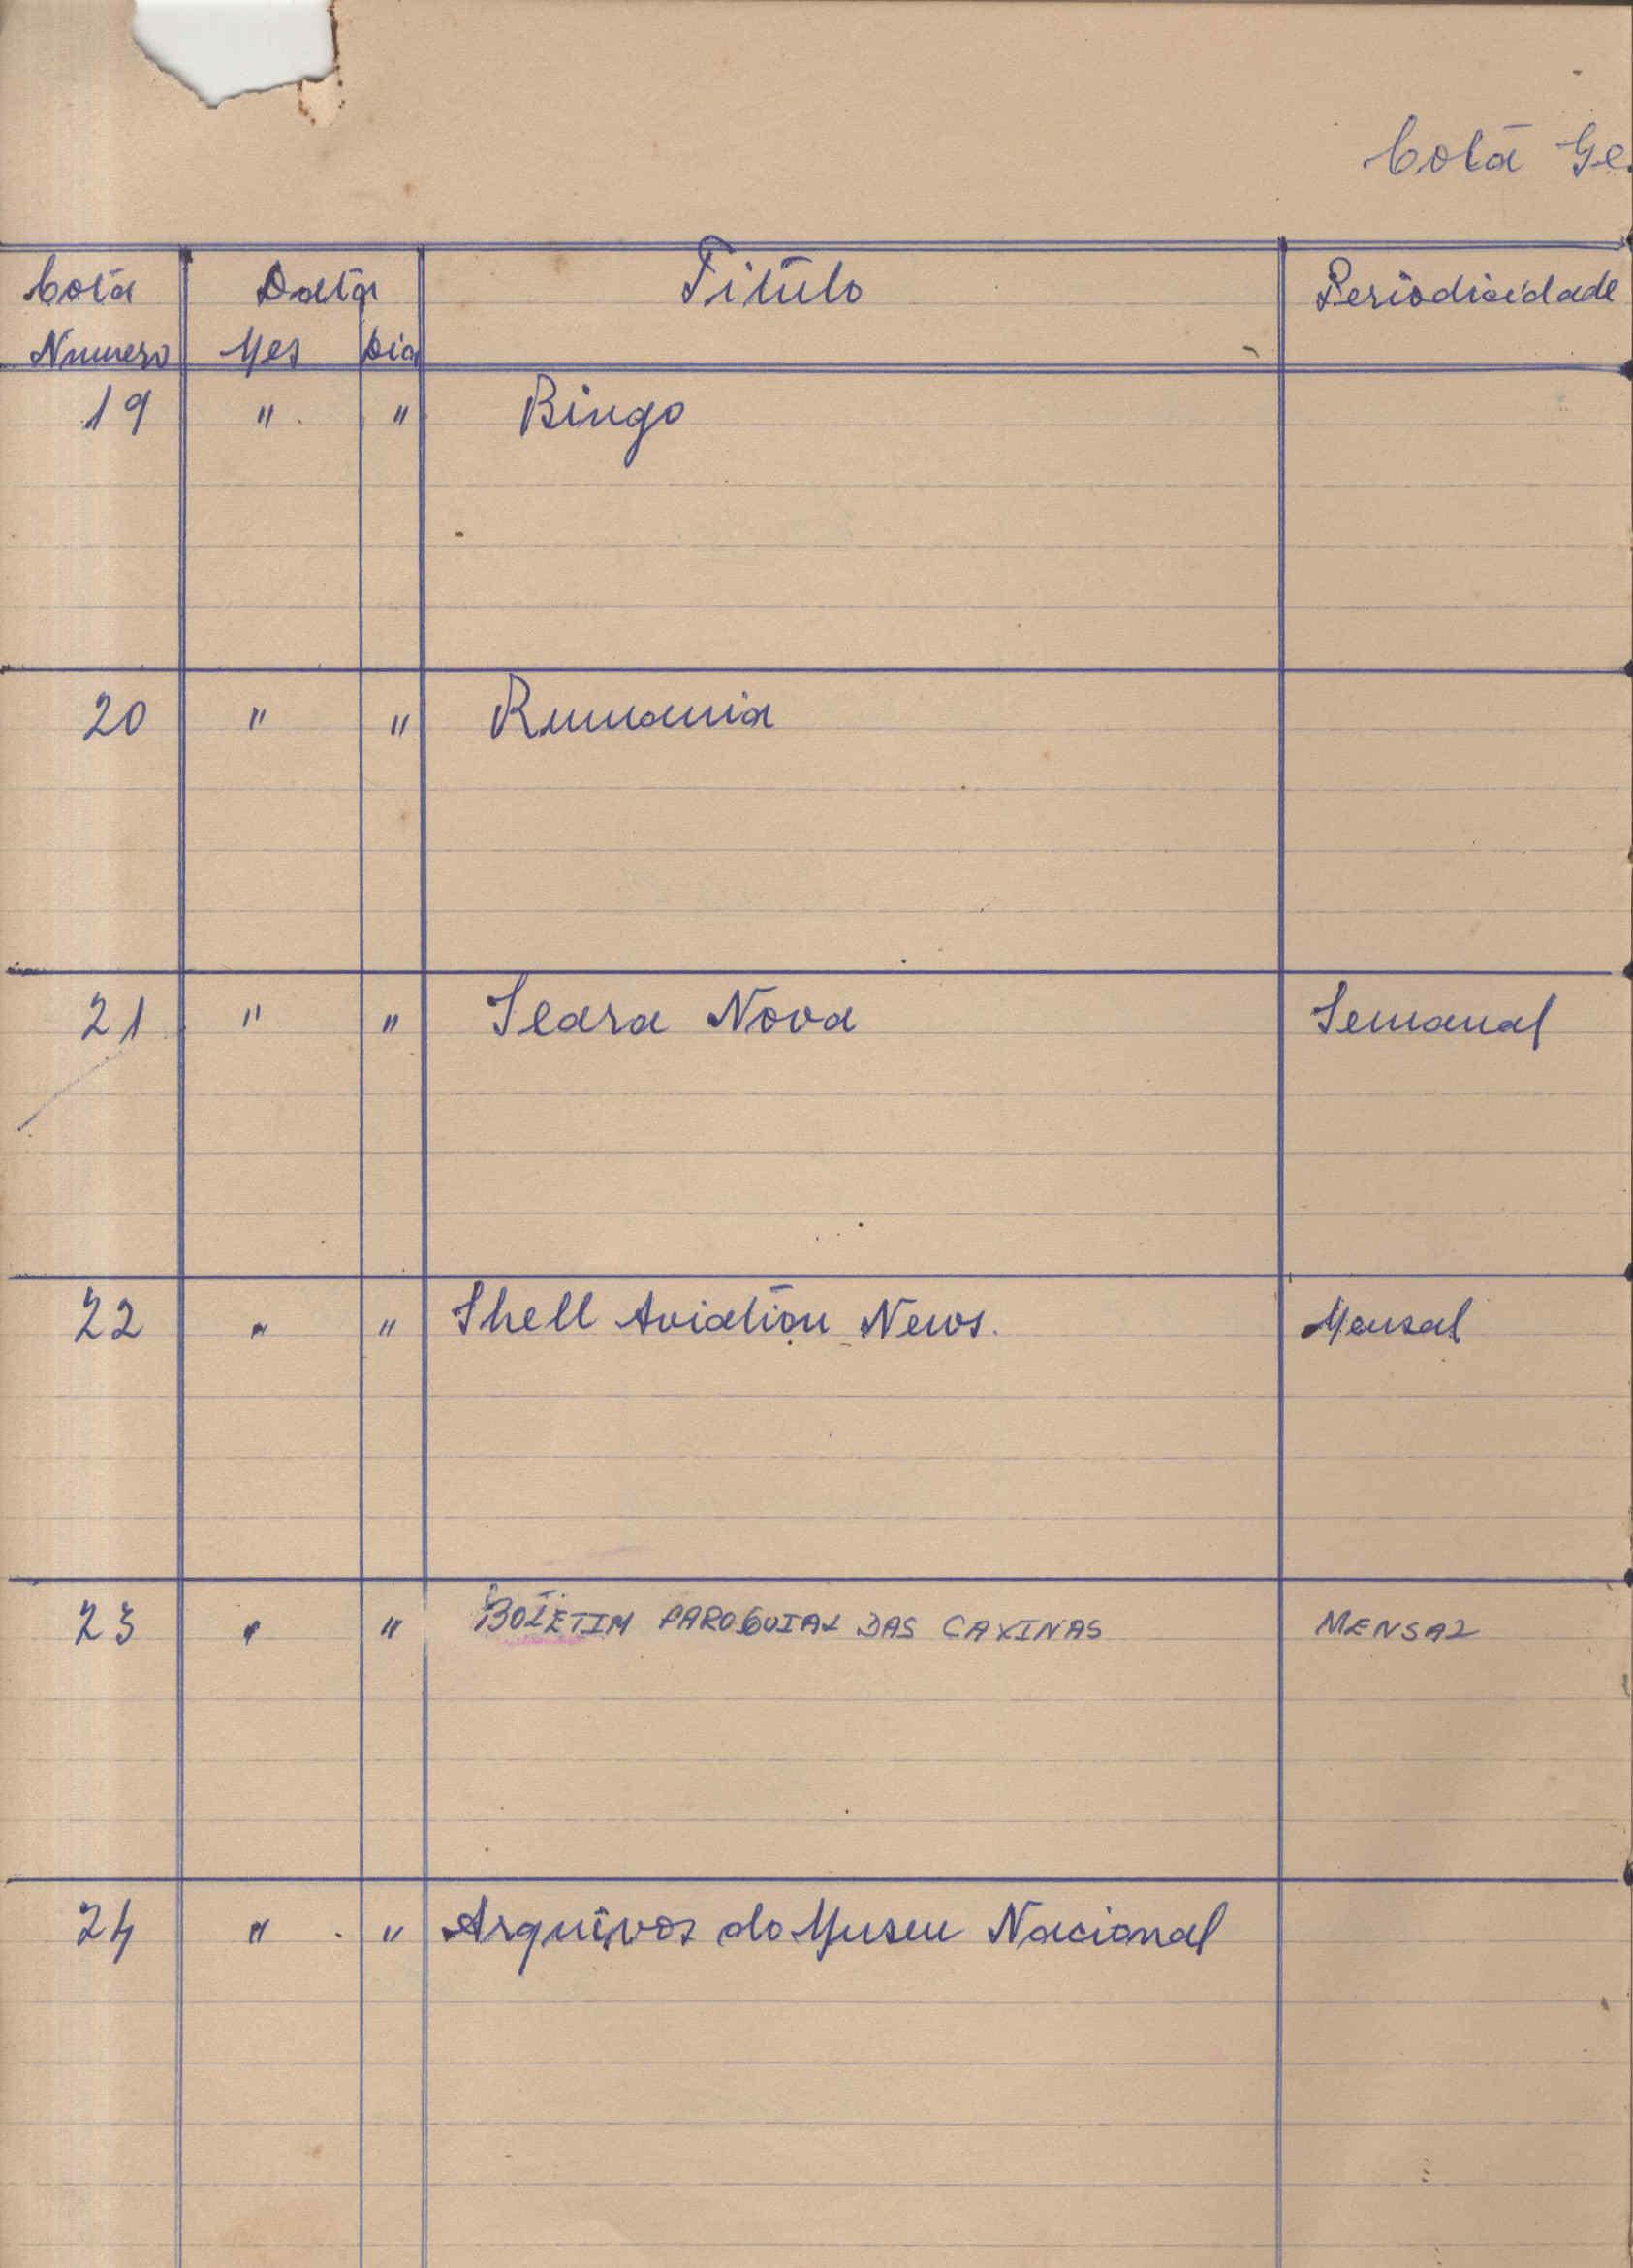 Cota Ge
Cota Data Titulo Periodicidade
Numero Mes Dia
19 " " Bingo
20 " " Rumania
21 " " Seara Nova Semanal
22 " " Shell Aviation News. Mensal
23 " " BOLETIM PAROQUIAL DAS CAXINAS MENSAL
24 " " Arquivos do Museu Nacional